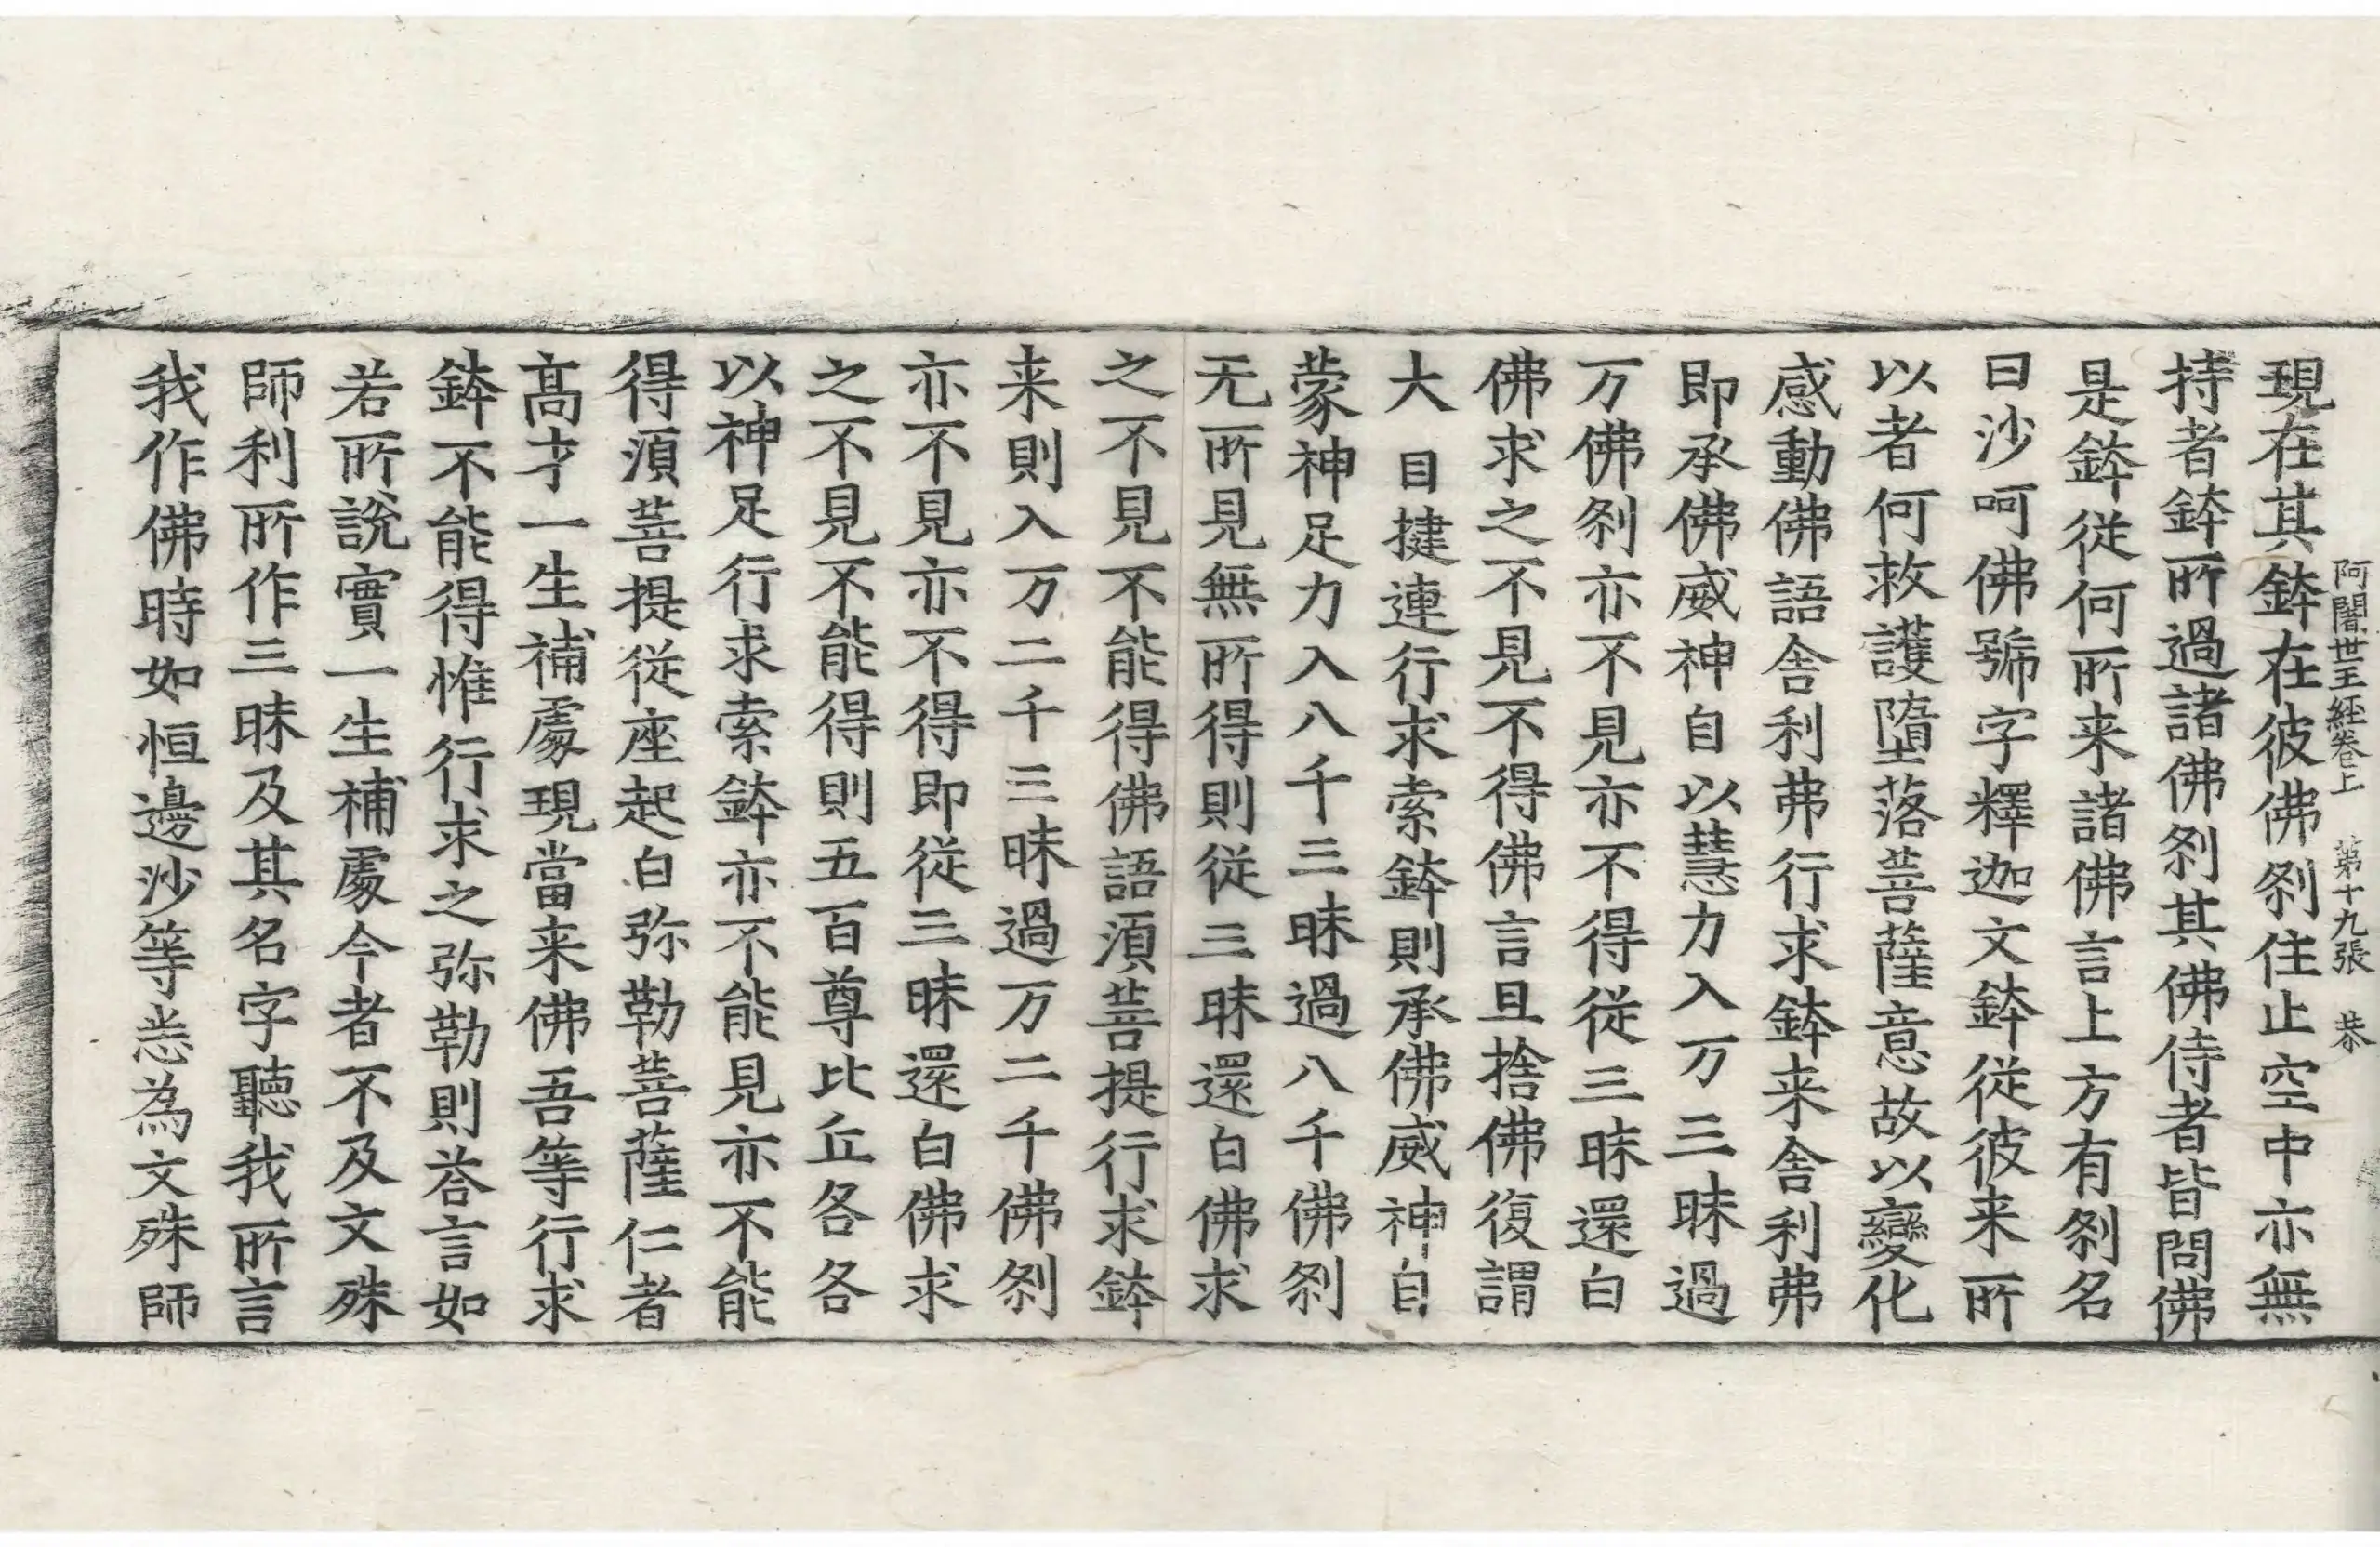 阿闍世王経卷上　第十九張　恭
現在其鉢在彼佛刹住止空中亦無
持者鉢所過諸佛刹其佛侍者皆問佛
是鉢従何所来諸佛言上方有刹名
曰沙呵佛號字釋迦文鉢従彼来所
以者何救護墮落菩薩意故以變化
感動佛語舍利弗行求鉢来舍利弗
即承佛威神自以慧力入万三昧過
万佛刹亦不見亦不得従三昧還白
佛求之不見不得佛言且捨佛復謂
大目揵連行求索鉢則承佛威神自
蒙神足力入八千三昧過八千佛刹
无所見無所得則従三昧還白佛求
之不見不能得佛語須菩提行求鉢
来則入万二千三昧過万二千佛刹
亦不見亦不得即従三昧還白佛求
之不見不能得則五百尊比丘各各
以神足行求索鉢亦不能見亦不能
得須菩提従座起白弥勒菩薩仁者
髙才一生補處現當来佛吾等行求
鉢不能得惟行求之弥勒則荅言如
若所說實一生補處今者不及文殊
師利所作三昧及其名字聽我所言
我作佛時如恒邊沙等悉為文殊師